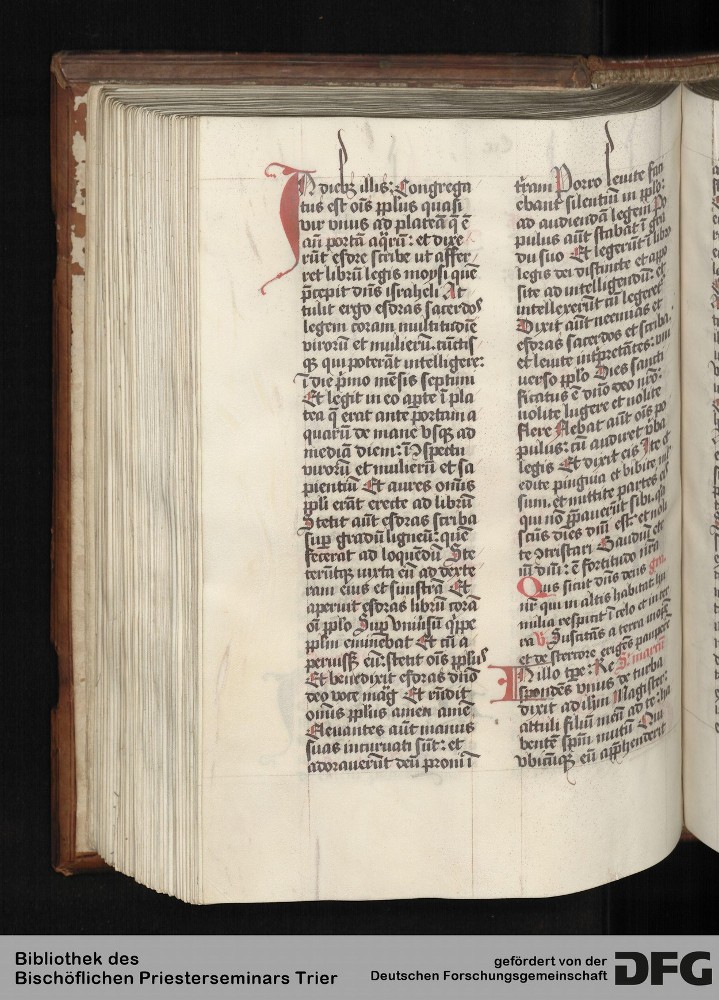 In dieb; illis: Congrega
tus est oı̄s pplūs quasi
vir vnus ad plateā q̄ ē
aū portā aq̄rū: et dixe
rūt esdre scribe ut affer
ret librū legis moysi quē
p̄cepit dn̄s israheli At
tulit ergo esdras sacerdos
legem coram multitudīe
virorū et mulierū. cūctis
q̨ qui poterāt intelligere:
ī die p̄mo mēsis septimi
Et legit in eo aꝑte ī pla
tea q̄ erat ante portam a
quarū de mane vsq̨ ad
mediā diem: ī ɔspectu
virorū et mulierū et sa
pientiū Et aures om̄is
ppl̄i erāt erecte ad librū
Stetit aūt esdras scriba
sup̄ gradū ligneū: quē
fecerat ad loquēdū Ste
terūtq̨ iuxta eū ad dexte
ram eius et sinistrā Et
aperuit esdras librū corā
oī pplo Sup̄ vniūsū q̄ppe
pplm eminebat Et cū a
peruisꝫ eū: stetit oı̄s pplūs
Et benedixit esdras dn̄o
deo voce māg Et rn̄dit
om̄is pplūs amen amē
Eleuantes aūt manus
suas incuruati sūt: et
adorauerūt deū proni ī
tr̄am Porro leuite faci
ebant silentiū in pplo:
ad audiendā legem Po
pulus aūt stabat ī gra
du suo Et legerūt ī libro
legis dei distincte et apo
site ad intelligendū: et
intellexerūt cū legeret
Dixit aūt neemias et
esdras sacerdos et scriba
et leuite int̄pretātes: vni
uerso pplo Dies sancti
ficatus ē dn̄o deo nr̄o:
nolite lugere et nolite
flere Flebat aūt oı̄s po
pulus: cū audiret v̄ba
legis Et dixit eis Ite et
edite pinguia et bibite mul
sum. et mittite partes eis
qui nō p̄pauerūt sibi. q̄a
scūs dies dn̄i est. et noli
te ɔtristari Gaudiū ete
ni dn̄i: ē fortitudo nr̄a
Quis sicut dn̄s deus gra
nr̄ qui in altis habitat hu
milia respicit ī celo et in ter
ra V Suscitās a terra inopē
et de stercore erigēs pauperē
In illo tp̄e: Re S' marcū
spondēs vnus de turba
dixit ad ilym Magister:
attuli filiū meū ad te: ha
bentē sp̄m mutū Qui
vbicūq̨ eū app̄henderit
Bibliothek des
Bischöflichen Priesterseminars Trier
gefördert von der
Deutschen Forschungsgemeinschaft
DFG